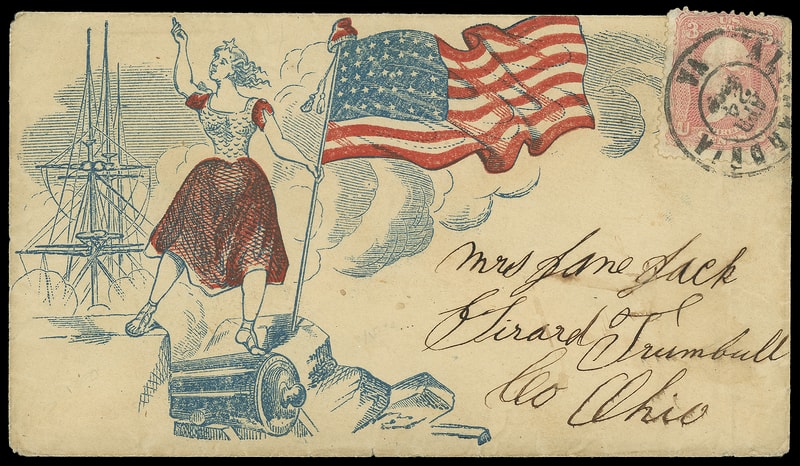 3
U.S.
ALEXANDRIA VA
Mrs Jane Jack
Girard Trumbull
Co Ohio